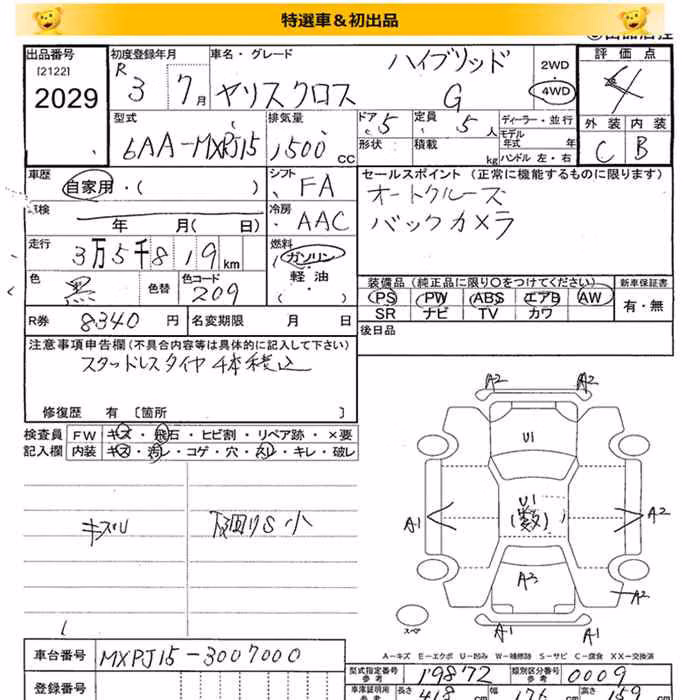 特選車＆初出品
出品番号
[2122]
2029
初度登録年月
R3 7月
車名・グレード
ヤリスクロス
ハイブリッド
G
2WD
4WD
評価点
4
型式
6AA-MXPJ15
排気量
1500 CC
ドア 5
形状
定員 5人
積載 kg
ディーラー・並行
モデル年式 年式
ハンドル 左・右
外装 内装
C B
車歴
自家用・( )
シフト
FA
セールスポイント (正常に機能するものに限ります)
オートクルーズ
バックカメラ
車検
年 月( 日)
冷房
AAC
走行
3万5千819km
燃料
ガソリン
軽油
( )
色
黒
色替
色コード
209
装備品 (純正品に限り〇をつけてください)
新車保証書
PS PW ABS エアB AW
SR ナビ TV カワ
有・無
R券 8340 円
名変期限 月 日
後日品
注意事項申告欄 (不具合内容等は具体的に記入して下さい)
スタッドレスタイヤ 4本積込
修復歴 有 〔箇所 〕
検査員
記入欄
FW キズ・飛石・ヒビ割・リペア跡・×要
内装 キズ・汚レ・コゲ・穴・スレ・キレ・破レ
キズU
下回りS小
A2 A2
U1
U1
(数)
A1
A2
A3
A2
A1 A1
スペア
A-キズ E-エクボ U-凹み W-補修跡 S-サビ C-腐食 XX-交換済
車台番号 MXPJ15-3007000
登録番号
型式指定番号
参考
19872
類別区分番号
参考
0009
車庫証明用
参考
長さ 418
幅
高さ 159